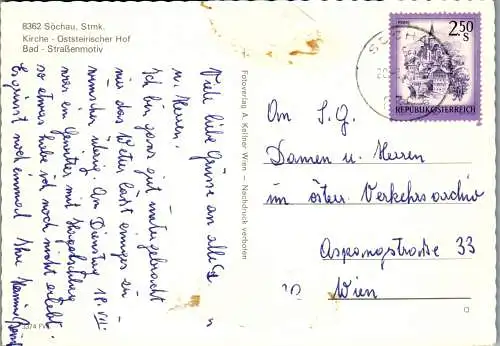 8362 Söchau, Stmk.
Kirche - Oststeirischer Hof
Bad - Straßenmotiv
Viele liebe Grüsse an alle Da-
u. Herren.
Ich bin ganz gut untergebracht
nur das Wetter lässt einiges zu
wünschen übrig. Am Dienstag 18. VII.
war ein Gewitter mit Hagelschlag
so etwas habe ich noch nicht erlebt.
Es grüsst nochmal Ihre
Fotoverlag A. Kellner Wien - Nachdruck verboten
2.50
S
REPUBLIK ÖSTERREICH
SÖCHAU
An S. G.
Damen u. Herren
im österr. Verkehrsarchiv
Aspangstraße 33
Wien